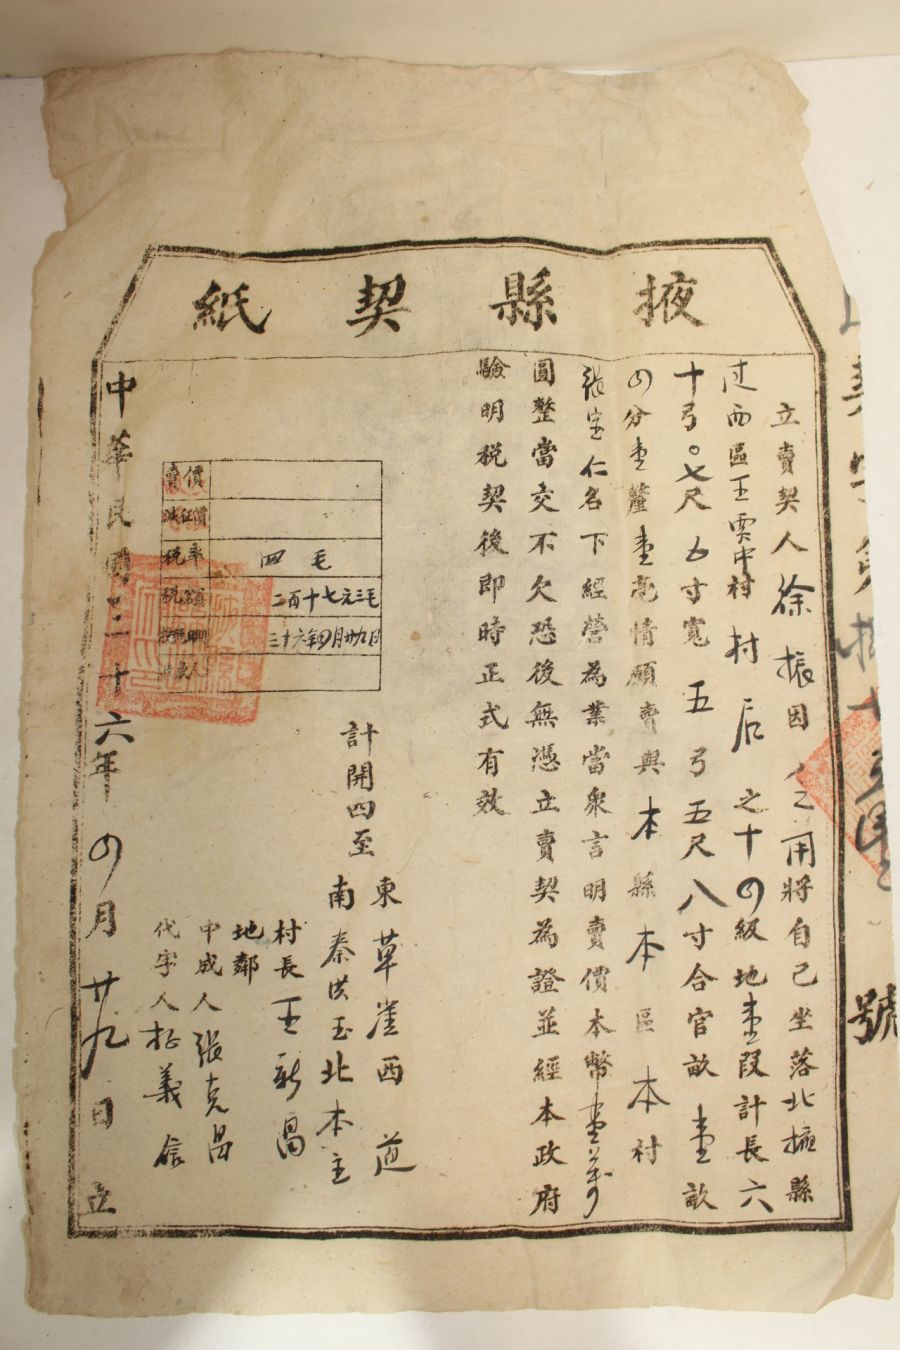 掖縣契紙
立賣契人徐振因 之用將自己坐落北掖縣
过西區王賈中村村后之十四級地壹段計長六
十弓〇七尺五寸寬五弓五尺八寸合官畝壹畝
四分壹釐壹毫情願賣與本縣本區本村
張宝仁名下經營為業當衆言明賣價本幣壹萬
圓整當交不欠恐後無憑立賣契為證並經本政府
驗明税契後即時正式有效
計開四至
東草崖西道
南秦洪玉北本主
村長王新昌
地鄰
中成人張克昌
代字人 義信
賣價
征價
税率 四毛
税額 二百十七元三毛
三十六年四月廿九日
人
中華民國三十六年四月廿九日立
號